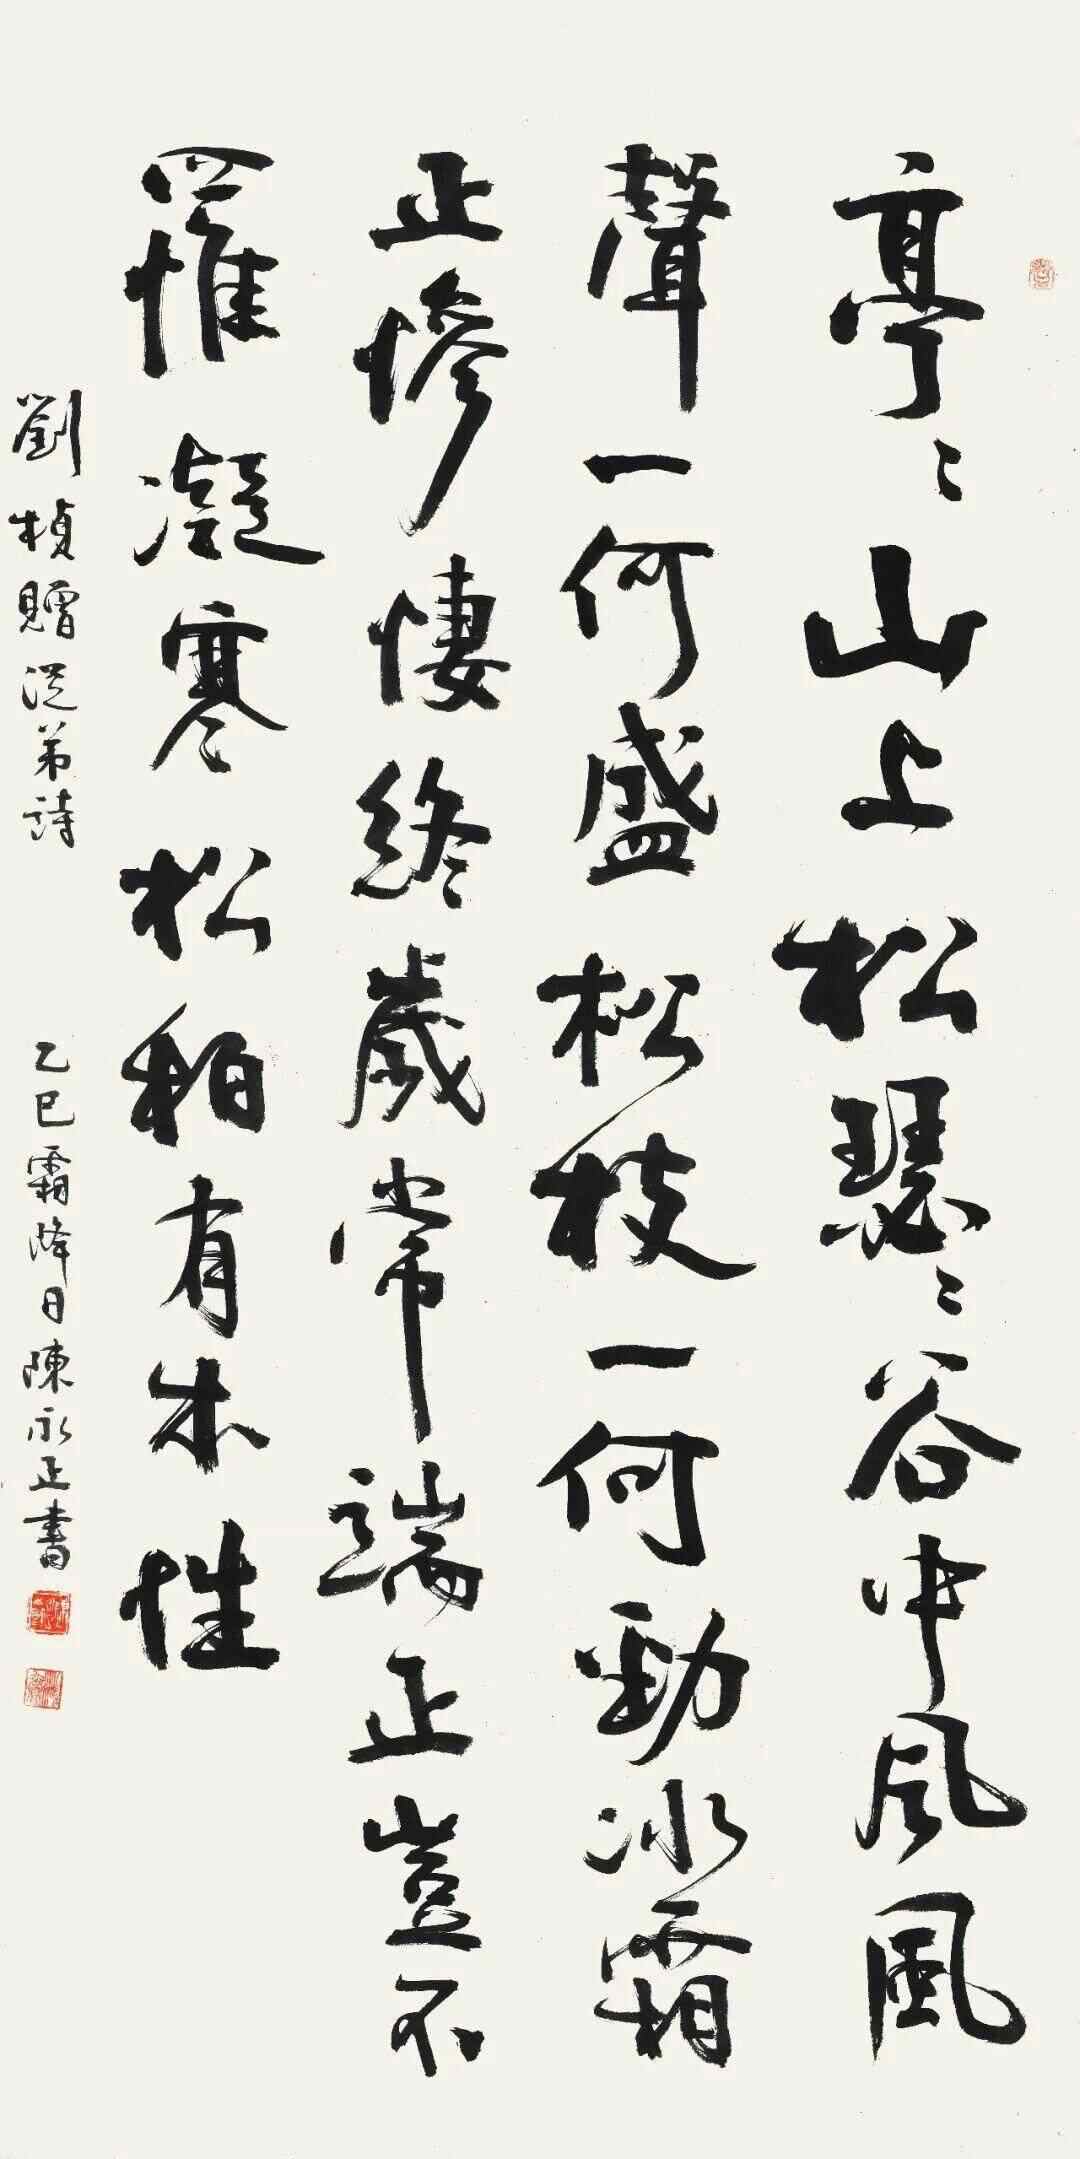 亭〻山上松瑟〻谷中风風
聲一何盛松枝一何勁冰霜
正慘悽終歲常端正豈不
罹凝寒松柏有本性
劉楨贈從弟詩
乙巳霜降日陳永正書